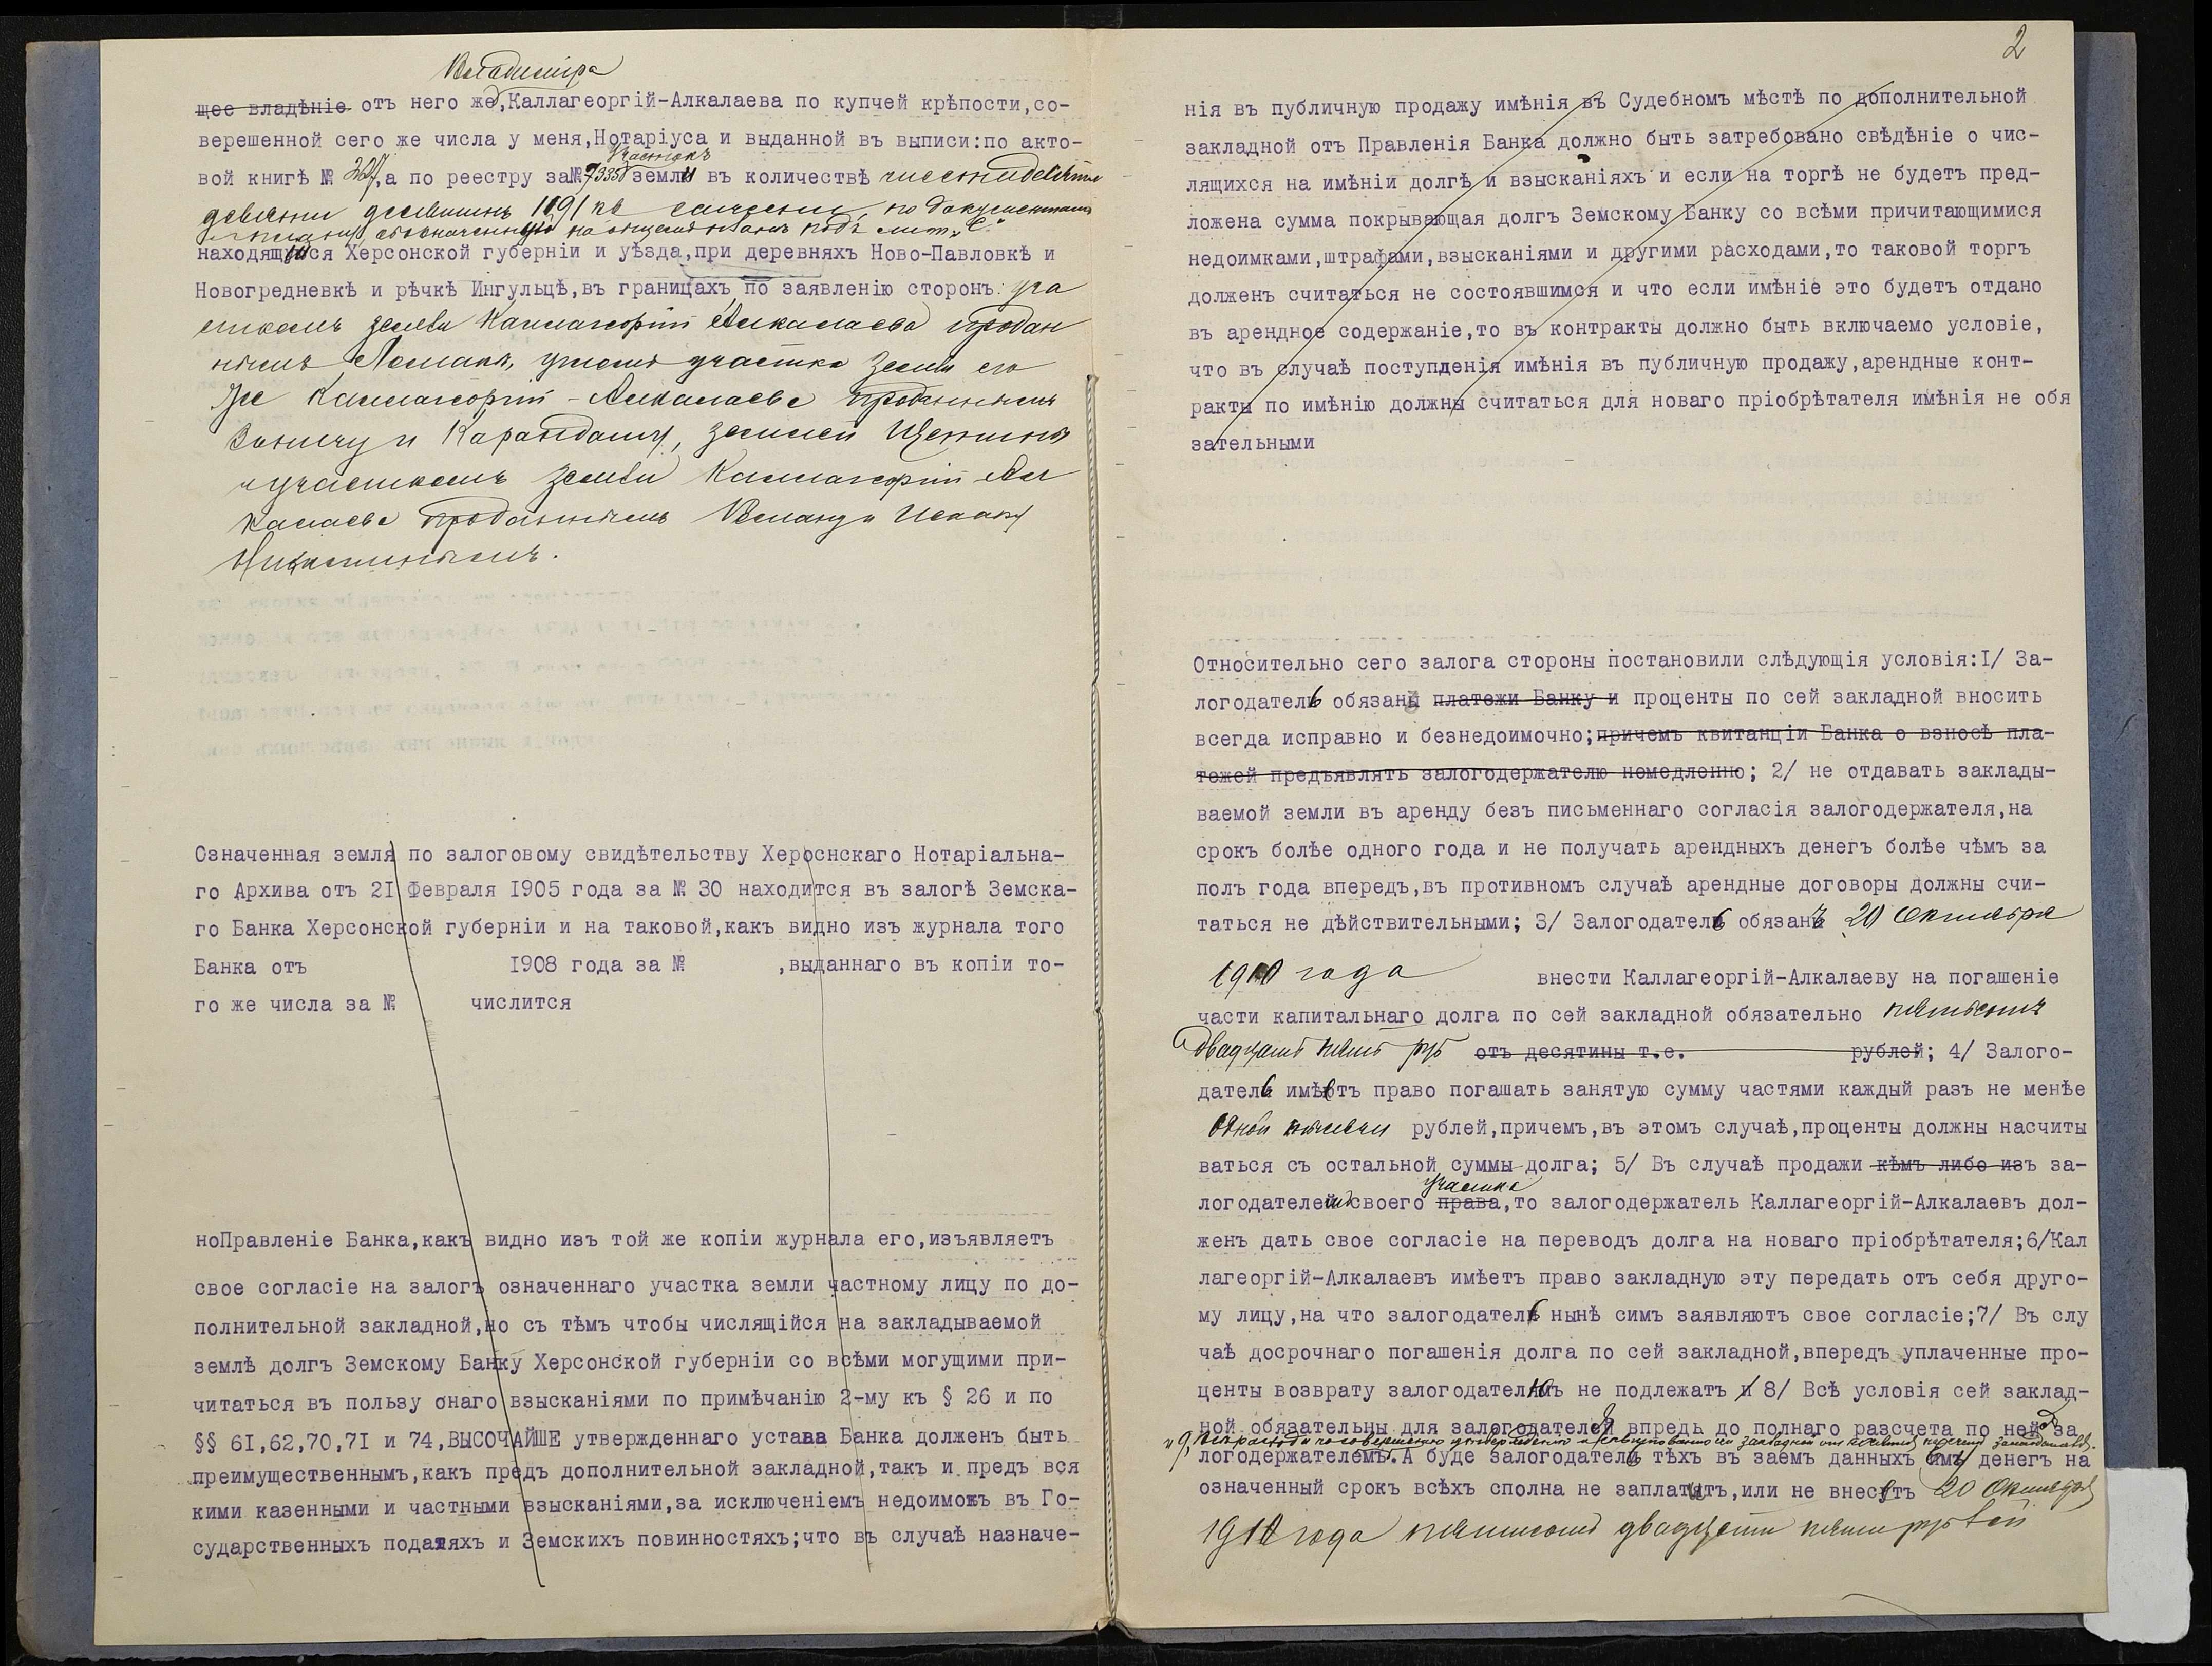 Владиміра
щее владѣніе отъ него же,Каллагеоргій-Алкалаева по купчей крѣпости,со-
верешенной сего же числа у меня,Нотаріуса и выданной въ выписи:по акто-
участокъ
вой книгѣ № ,а по реестру за№ 7335 земли въ количествѣ шестидесяти
девяти десятинъ 1191 кв сажени, по документамъ
и плану обозначенный на общемъ планѣ подъ лит. „С"
находящійся Херсонской губерніи и уѣзда,при деревняхъ Ново-Павловкѣ и
Новогредневкѣ и рѣчкѣ Ингульцѣ,въ границахъ по заявленію сторонъ: уча
сткомъ земли Каллагеоргій Алкалаева продан
нымъ участка земли его
же Каллагеоргій-Алкалаева проданнымъ
и Карандашу, землей
и участкомъ земли Каллагеоргій-Ал
калаева проданнымъ и Исааку
Никитинымъ.
Означенная земля по залоговому свидѣтельству Хероснскаго Нотаріальна-
го Архива отъ 2I Февраля I905 года за № 30 находится въ залогѣ Земска-
го Банка Херсонской губерніи и на таковой,какъ видно изъ журнала того
Банка отъ I908 года за № ,выданнаго въ копіи то-
го же числа за № числится
ноПравленіе Банка,какъ видно изъ той же копіи журнала его,изъявляетъ
свое согласіе на залогъ означеннаго участка земли частному лицу по до-
полнительной закладной,но съ тѣмъ чтобы числящійся на закладываемой
землѣ долгъ Земскому Банку Херсонской губерніи со всѣми могущими при-
читаться въ пользу онаго взысканіями по примѣчанію 2-му къ § 26 и по
§§ 6I,62,70,7I и 74,ВЫСОЧАЙШЕ утвержденнаго устава Банка долженъ быть
преимущественнымъ,какъ предъ дополнительной закладной,такъ и предъ вся
кими казенными и частными взысканіями,за исключеніемъ недоимокъ въ Го-
сударственныхъ податяхъ и Земскихъ повинностяхъ;что въ случаѣ назначе-
2
нія въ публичную продажу имѣнія въ Судебномъ мѣстѣ по дополнительной
закладной отъ Правленія Банка должно быть затребовано свѣдѣніе о чис-
лящихся на имѣніи долгѣ и взысканіяхъ и если на торгѣ не будетъ пред-
ложена сумма покрывающая долгъ Земскому Банку со всѣми причитающимися
недоимками,штрафами,взысканіями и другими расходами,то таковой торгъ
долженъ считаться не состоявшимся и что если имѣніе это будетъ отдано
въ арендное содержаніе,то въ контракты должно быть включаемо условіе,
что въ случаѣ поступленія имѣнія въ публичную продажу,арендные конт-
ракты по имѣнію должны считаться для новаго пріобрѣтателя имѣнія не обя
зательными
Относительно сего залога стороны постановили слѣдующія условія:I/ За-
логодатель обязанъ платежи Банку и проценты по сей закладной вносить
всегда исправно и безнедоимочно;причемъ квитанціи Банка о взносѣ пла-
тежей предъявлять залогодержателю немедленно; 2/ не отдавать заклады-
ваемой земли въ аренду безъ письменнаго согласія залогодержателя,на
срокъ болѣе одного года и не получать арендныхъ денегъ болѣе чѣмъ за
полъ года впередъ,въ противномъ случаѣ арендные договоры должны счи-
таться не дѣйствительными; 3/ Залогодатель обязанъ 20 Октября
1910 года внести Каллагеоргій-Алкалаеву на погашеніе
части капитальнаго долга по сей закладной обязательно пятьсотъ
двадцать пять руб отъ десятины т.е. рублей; 4/ Залого-
датель имѣетъ право погашать занятую сумму частями каждый разъ не менѣе
одной тысячи рублей,причемъ,въ этомъ случаѣ,проценты должны насчиты
ваться съ остальной суммы долга; 5/ Въ случаѣ продажи кѣмъ либо изъ за-
участка
логодателемъ своего права,то залогодержатель Каллагеоргій-Алкалаевъ дол-
женъ дать свое согласіе на переводъ долга на новаго пріобрѣтателя;6/Кал
лагеоргій-Алкалаевъ имѣетъ право закладную эту передать отъ себя друго-
му лицу,на что залогодатель нынѣ симъ заявляютъ свое согласіе;7/ Въ слу
чаѣ досрочнаго погашенія долга по сей закладной,впередъ уплаченные про-
центы возврату залогодателю не подлежатъ и 8/ Всѣ условія сей заклад-
ной обязательны для залогодателя впредь до полнаго разсчета по ней за
и 9, Всѣ расходы по совершенію утвержденію и закладной
логодержателемъ.А буде залогодатель тѣхъ въ заемъ данныхъ ему денегъ на
означенный срокъ всѣхъ сполна не заплатитъ,или не внесетъ 20 Октября
1910 года пятьсотъ двадцати пяти рублей